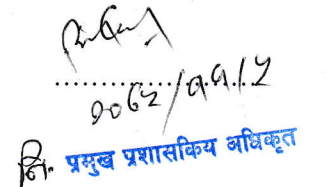 २०६२/११/५
नि. प्रमुख प्रशासकिय अधिकृत